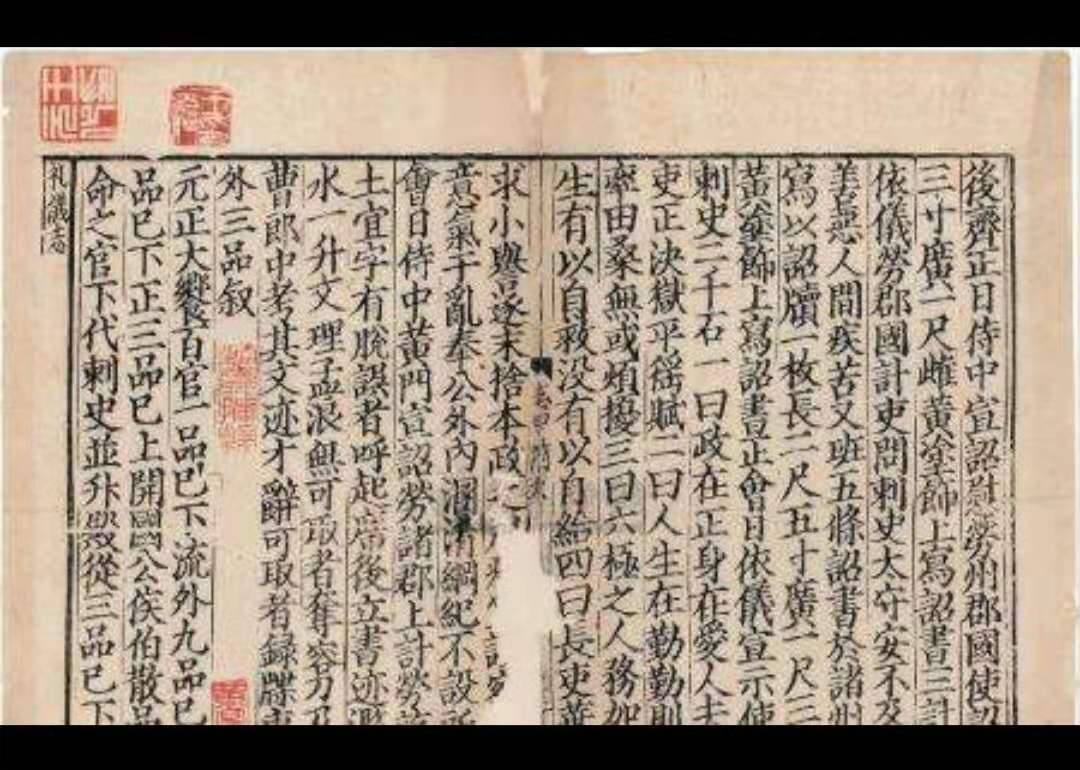 後齊正日侍中宣詔慰勞州郡國使詔
三寸廣一尺雌黃塗飾上寫詔書三計
依儀勞郡國計吏問刺史太守安不及
善惡人間疾苦又班五條詔書於諸州
寫以詔牘一枚長二尺五寸廣一尺三
黃塗飾上寫詔書正會日依儀宣示使
刺史二千石一曰政在正身在愛人去
吏正決獄平徭賦二曰人生在勤勤則
率田桑無或煩擾三曰六極之人務加
生有以自救没有以自給四曰長吏華
求小譽逐末捨本政之
意氣干亂奉公外內溷淆綱紀不設所
會日侍中黃門宣詔勞諸郡上計勞
土宜字有脫誤者呼起席後立書迹濫
水一升文理孟浪無可取者奪容刀及
曹郎中考其文迹才辭可取者録牒吏
外三品叙
元正大饗百官一品已下流外九品已
品已下正三品已上開國公侯伯散品
命之官下代刺史並升殿從三品已下
礼儀志